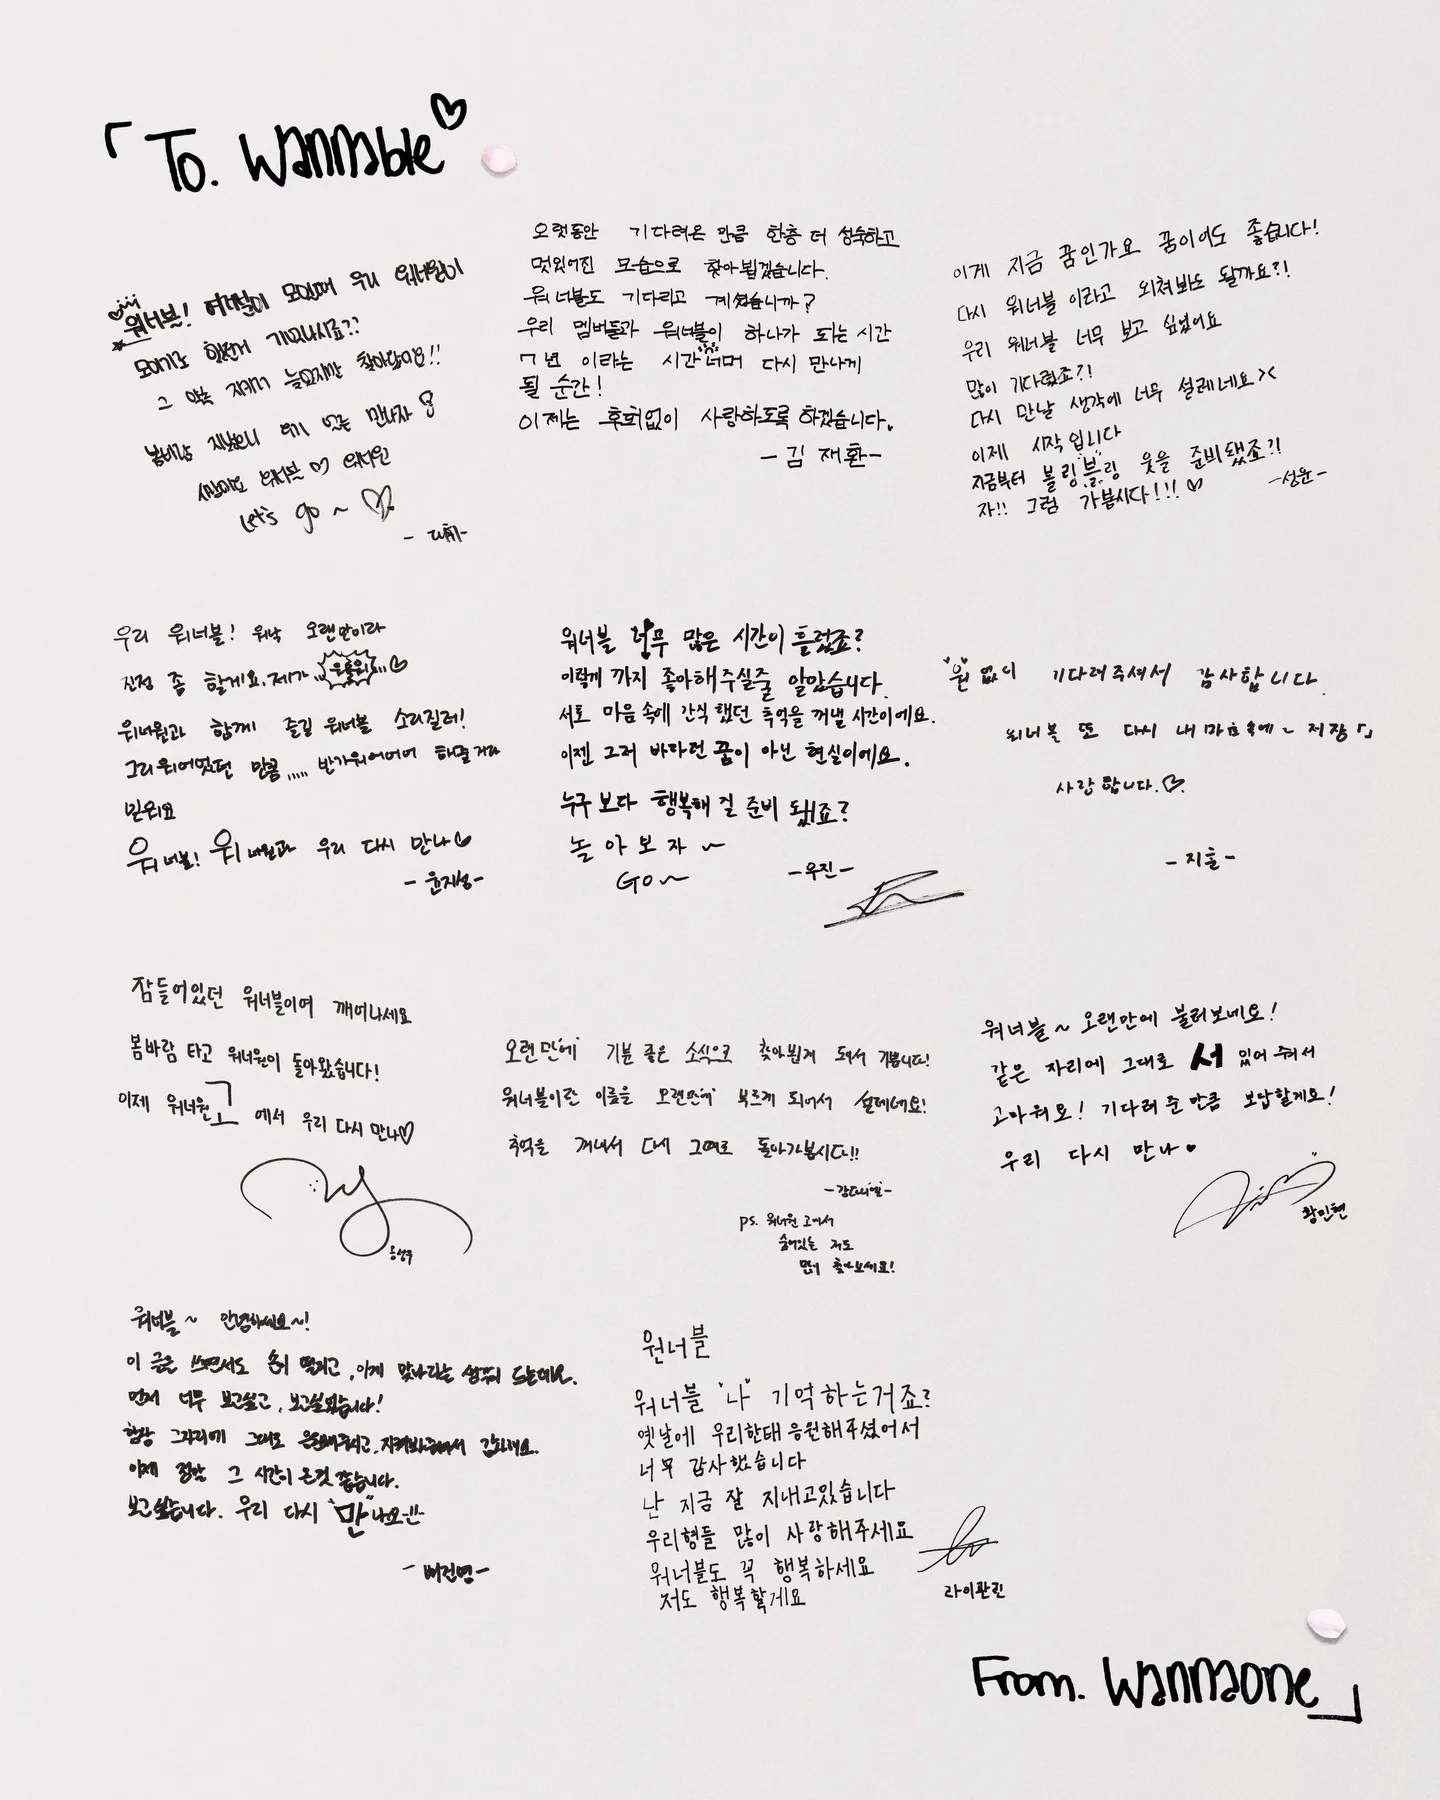 「To. Wannable♡
워너블! 여러분이 모이면 우리 워너원이
모이기로 했던거 기억나시죠??
그 약속 지키러 늦었지만 찾아왔어요!!
봄바람 지났으니 여기 있는 만나자
사랑해요 워너블♡ 워너원
Let's go ~ ♡
- 대휘-
오랫동안 기다려온 만큼 한층 더 성숙하고
멋있어진 모습으로 찾아뵙겠습니다.
워너블도 기다리고 계셨습니까?
우리 멤버들과 워너블이 하나가 되는 시간
7년 이라는 시간 너머 다시 만나게
될 순간!
이제는 후회없이 사랑하도록 하겠습니다.
- 김재환-
이게 지금 꿈인가요 꿈이어도 좋습니다!
다시 워너블 이라고 외쳐봐도 될까요?!
우리 워너블 너무 보고 싶었어요
많이 기다렸죠?!
다시 만날 생각에 너무 설레네요><
이제 시작입니다
지금부터 블링"블"링 웃을 준비됐죠?!
자!! 그럼 가봅시다!!! ♡
-성운-
우리 워너블! 워낙 오랜만이라
진정 좀 할게요. 제가 ,,,♡
워너원과 함께 즐길 워너블 소리질러!
그리워어었던 만큼,,,,, 반가워어어어 해줄거라
믿어요
워너블! 워너원과 우리 다시 만나♡
- 윤지성-
워너블 너무 많은 시간이 흘렀죠?
이렇게 까지 좋아해주실줄 알았습니다.
서로 마음속에 간직했던 추억을 꺼낼 시간이에요.
이젠 그저 바라던 꿈이 아닌 현실이에요.
누구보다 행복해질 준비 됐죠?
놀아보자 ~
Go~
-우진-
"원"없이 기다려주셔서 감사합니다.
워너블 또 다시 내 마음속에~ 저장「」
사랑합니다.♡.
- 지훈-
잠들어있던 워너블이여 깨어나세요
봄바람 타고 워너원이 돌아왔습니다!
이제 워너원고에서 우리 다시 만나♡
옹성우
오랜만에 기분 좋은 소식으로 찾아뵙게 돼서 기쁩니다!
워너블이란 이름을 오랜만에 부르게 되어서 설레네요!
추억을 꺼내서 다시 그때로 돌아가봅시다!!
-강다니엘-
ps. 워너원 고에서
숨어있는 저도
많이 찾아보세요!
워너블~ 오랜만에 불러보네요!
같은 자리에 그대로 서 있어 줘서
고마워요! 기다려준만큼 보답할게요!
우리 다시 만나♥
황민현
워너블~ 안녕하세요~!
이 글을 쓰면서도 손이 떨리고, 이게 맞나라는 생각이 드는데요.
먼저 너무 보고싶고, 보고싶었습니다!
항상 그자리에 그대로 응원해주시고, 지켜봐주셔서 감사해요.
이제 정말 그 시간이 온것 같습니다.
보고싶습니다. 우리 다시 "만"나요-!!
- 배진영-
원너블
워너블 "나" 기억하는거죠?
옛날에 우리한태 응원해주셨어서
너무 감사했습니다
난 지금 잘 지내고있습니다
우리형들 많이 사랑해주세요
워너블도 꼭 행복하세요
저도 행복할게요
라이관린
From. Wannaone」